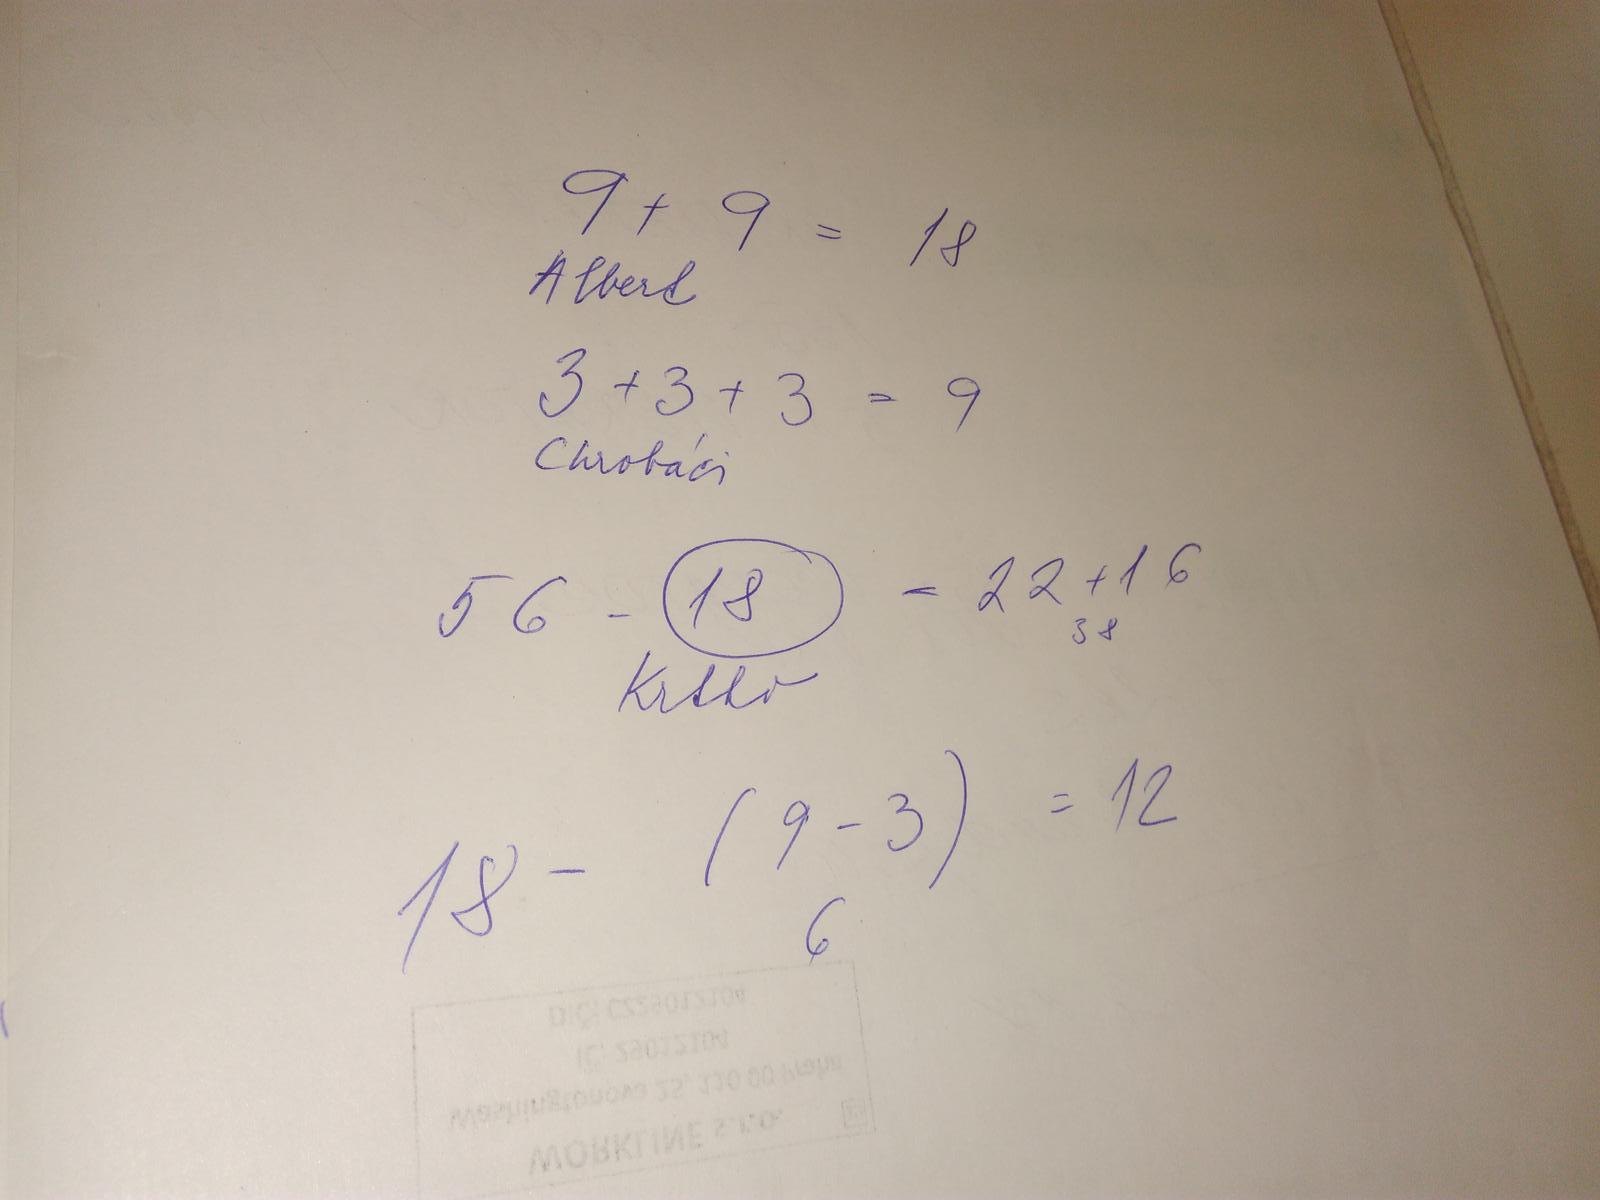 9 + 9 = 18
Albert
3 + 3 + 3 = 9
Chrobáci
56 - 18 = 22 + 16
38
Krtko
18 - (9 - 3) = 12
6
DIČ: CZ29012104
IČ: 29012104
Washingtonova 25, 110 00 Praha
WORKLINE s.r.o.